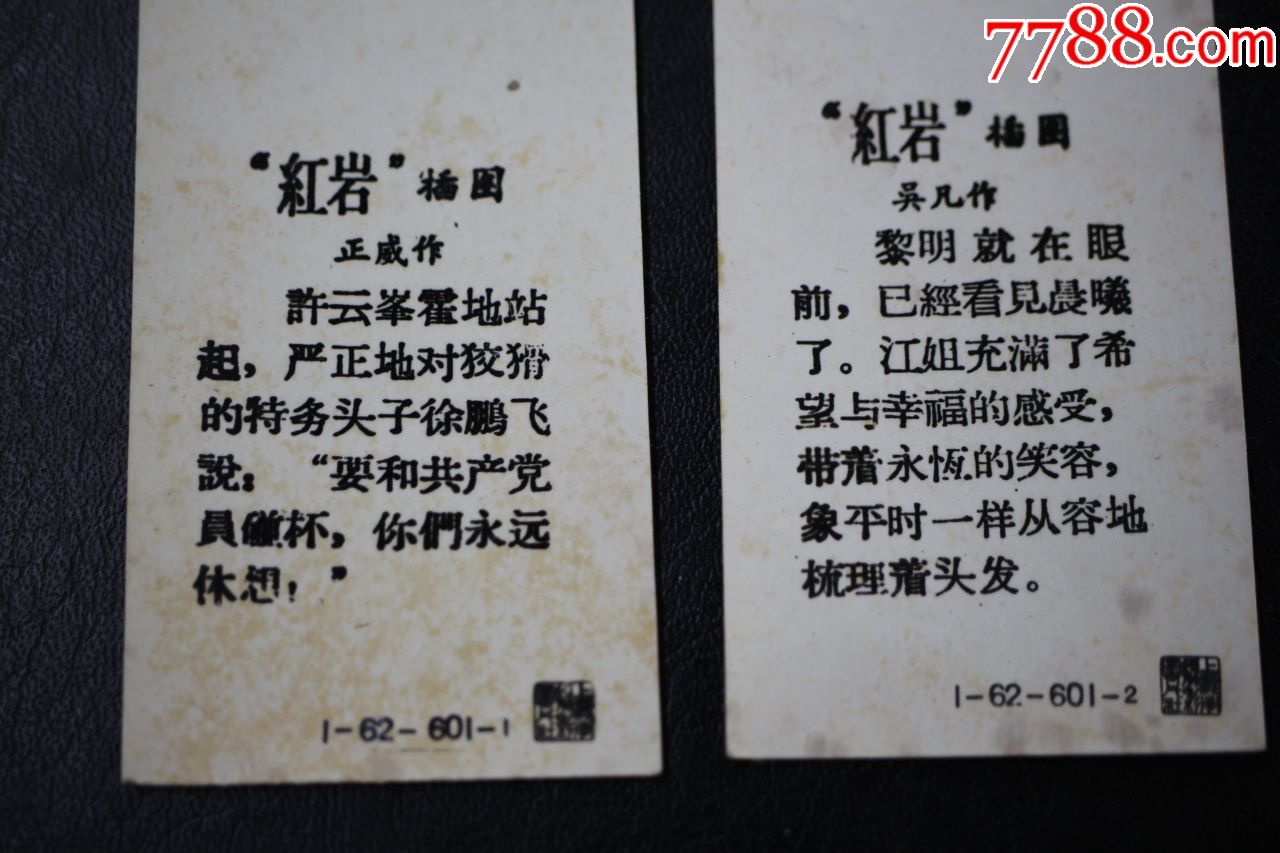 7788.com
“紅岩”插图
正威作
許云峯霍地站
起，严正地对狡猾
的特务头子徐鵬飞
說：“要和共产党
員碰杯，你們永远
休想！”
1-62-601-1
“紅岩”插图
吳凡作
黎明就在眼
前，已經看見晨曦
了。江姐充滿了希
望与幸福的感受，
带着永恆的笑容，
象平时一样从容地
梳理着头发。
1-62-601-2